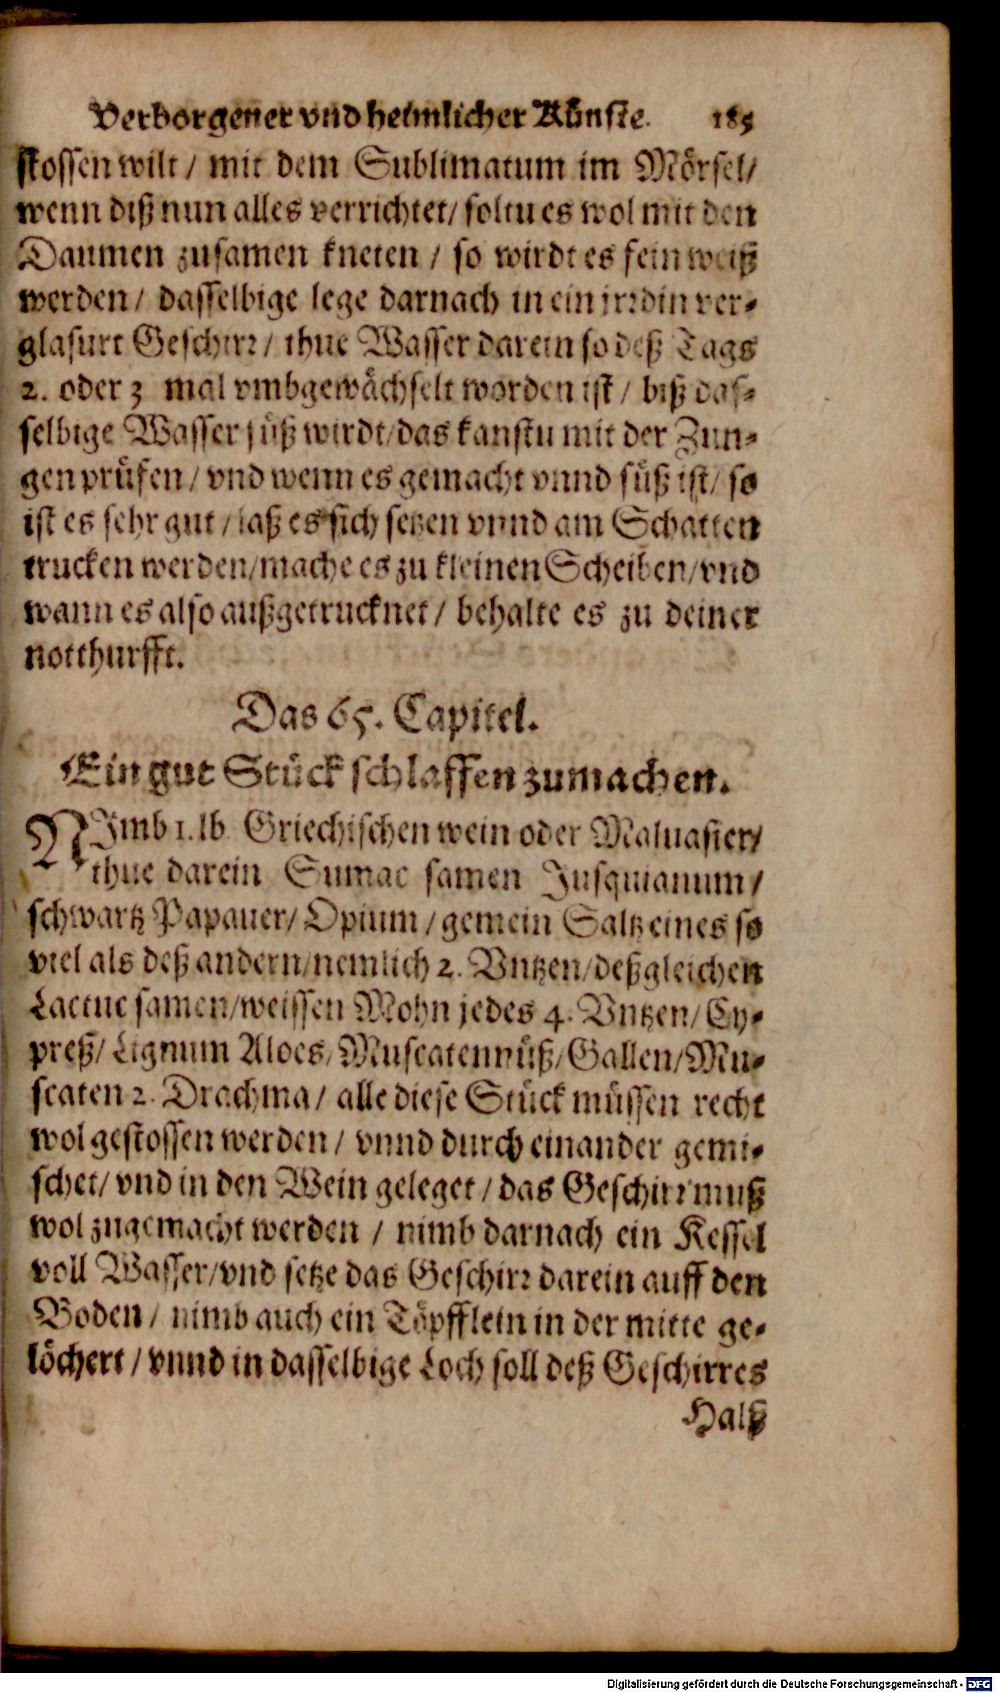 Verborgener vnd heimlicher Künste. 185
stossen wilt / mit dem Sublimatum im Mörsel/
wenn diß nun alles verrichtet/ soltu es wol mit den
Daumen zusamen kneten / so wirdt es fein weiß
werden / dasselbige lege darnach in ein jrrdin ver-
glasurt Geschirr / thue Wasser darein so deß Tags
2. oder 3 mal vmbgewächselt worden ist / biß das-
selbige Wasser süß wirdt/ das kanstu mit der Zun-
gen prüfen / vnd wenn es gemacht vnnd süß ist/ so
ist es sehr gut / laß es sich setzen vnnd am Schatten
trucken werden/mache es zu kleinen Scheiben/vnd
wann es also außgetrucknet / behalte es zu deiner
notthurfft.
Das 65. Capitel.
Ein gut Stück schlaffen zumachen.
NImb 1. lb Griechischen wein oder Maluasier/
thue darein Sumac samen Jusquianum /
schwartz Papauer/ Opium / gemein Saltz eines so
viel als deß andern/nemlich 2. Vntzen/deßgleichen
Lactuc samen/weissen Mohn jedes 4. Vntzen/ Cy-
preß/ Lignum Aloes/ Muscatennüß/Gallen/Mu-
scaten 2. Drachma / alle diese Stück müssen recht
wol gestossen werden / vnnd durch einander gemi-
schet/ vnd in den Wein geleget / das Geschirr muß
wol zugemacht werden / nimb darnach ein Kessel
voll Wasser/vnd setze das Geschirr darein auff den
Boden / nimb auch ein Töpfflein in der mitte ge-
löchert / vnnd in dasselbige Loch soll deß Geschirres
Halß
Digitalisierung gefördert durch die Deutsche Forschungsgemeinschaft - DFG